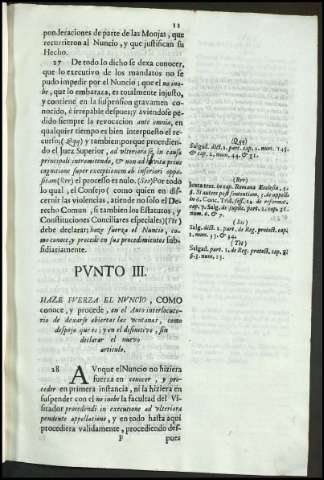 11
ponderaciones de parte de las Monjas, que
recurrieron al Nuncio, y que justifican su
Hecho.
27 De todo lo dicho se dexa conocer,
que lo executivo de los mandatos no se
pudo impedir por el Nuncio; que el no inno-
be, que lo embaraza, es totalmente injusto,
y contiene en la suspension gravamen co-
nocido, è irreparable despues; y aviendose pe-
dido siempre la revocacion ante omnia, en
qualquier tiempo es bien interpuesto el re-
curso; (Qqq) y tambien; porque procedien-
do el Juez Superior, ad vlteriora se in causa
principali intromittendo, & non ad hec vt prius
cognitione super exceptionem ab inferiori appo-
sitam; (Rrr) el processo es nulo. (Sss) Por todo
lo qual, el Consejo (como quien en discer-
nir las violencias, atiende no solo el Dere-
cho Comun, si tambien los Estatutos, y
Constituciones Conciliares especiales) (Ttt)
debe declarar; haze fuerza el Nuncio, co-
mo conoce, y procede en sus procedimientos sub-
sidiariamente.
(Qqq)
Salgad. dict. 1. part. cap. 2. num. 145.
& cap. 2. num. 44. & 51.
(Rrr)
(Sss)
Salg. dict. 2. part. de Reg. protect. cap.
1. num. 13. & 94.
(Ttt)
Salgad. part. 2. de Reg. protect. cap. 9.
PVNTO III.
HAZE FVERZA EL NVNCIO, COMO
conoce, y procede, en el Auto interlocuto-
rio de denarfe abiertas las ventanas, como
despojo que es; y en el difinitivo, sin
declarar el nuevo
articulo.
28 AVnque el Nuncio no hiziera
fuerza en conocer, y pro-
ceder en primera instancia, ni la hiziera en
suspender con el no inobe la facultad del Vi-
sitador procedendi in executione ad vlteriora
pendente appellatione, y en todo hasta aqui
procediera validamente, procediendo des-
F pues